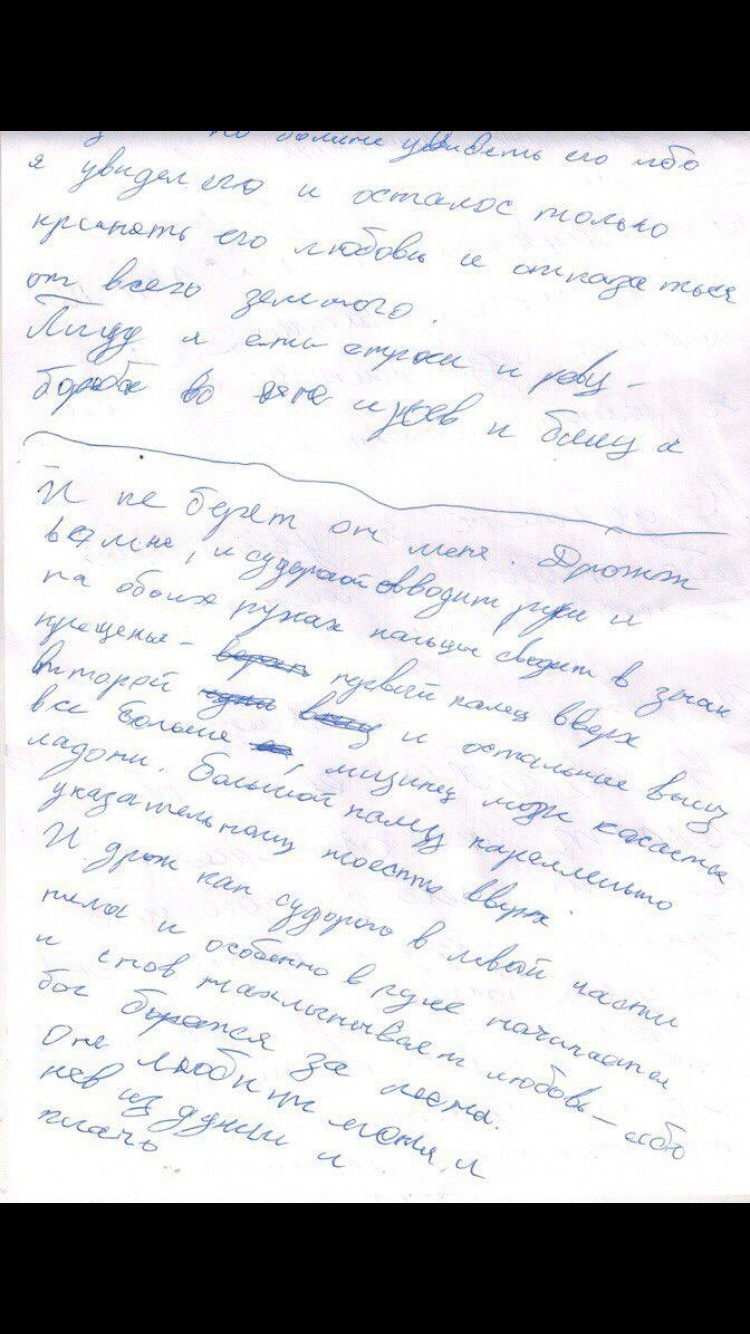 увидеть его ибо
я увидел его и осталос только
принять его любовь и отказаться
от всего земного.
Пишу я эти строки и реву -
борьба во мне и
И не берет он меня. Дрожь
во мне, и судорогой сводит руки и
на обоих руках пальцы сводит в знак
крещенье - первый палец вверх
второй и остальные вниз
все больше, мизинец может касаться
ладони. Большой палец параллельно
указательному тоесть вверх.
И дрож как судорога в левой части
тела и особенно в руке начинается
и снов нахлынывает любовь - ибо
бог борется за меня.
Он любит меня, и
из души и
плачь